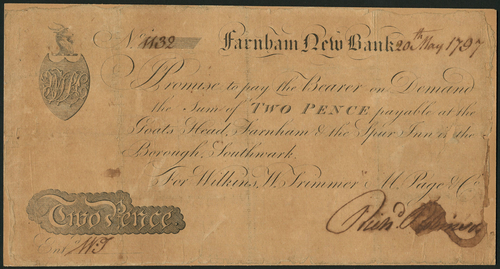 No. 1132 Farnham New Bank 20th May 1797
I Promise to pay the Bearer on Demand
the Sum of TWO PENCE payable at the
Goats Head, Farnham & the Spur Inn in the
Borough, Southwark.
For Wilkins, H. Trimmer, M. Page & Co.
Two Pence
Entd. WT
Richd.